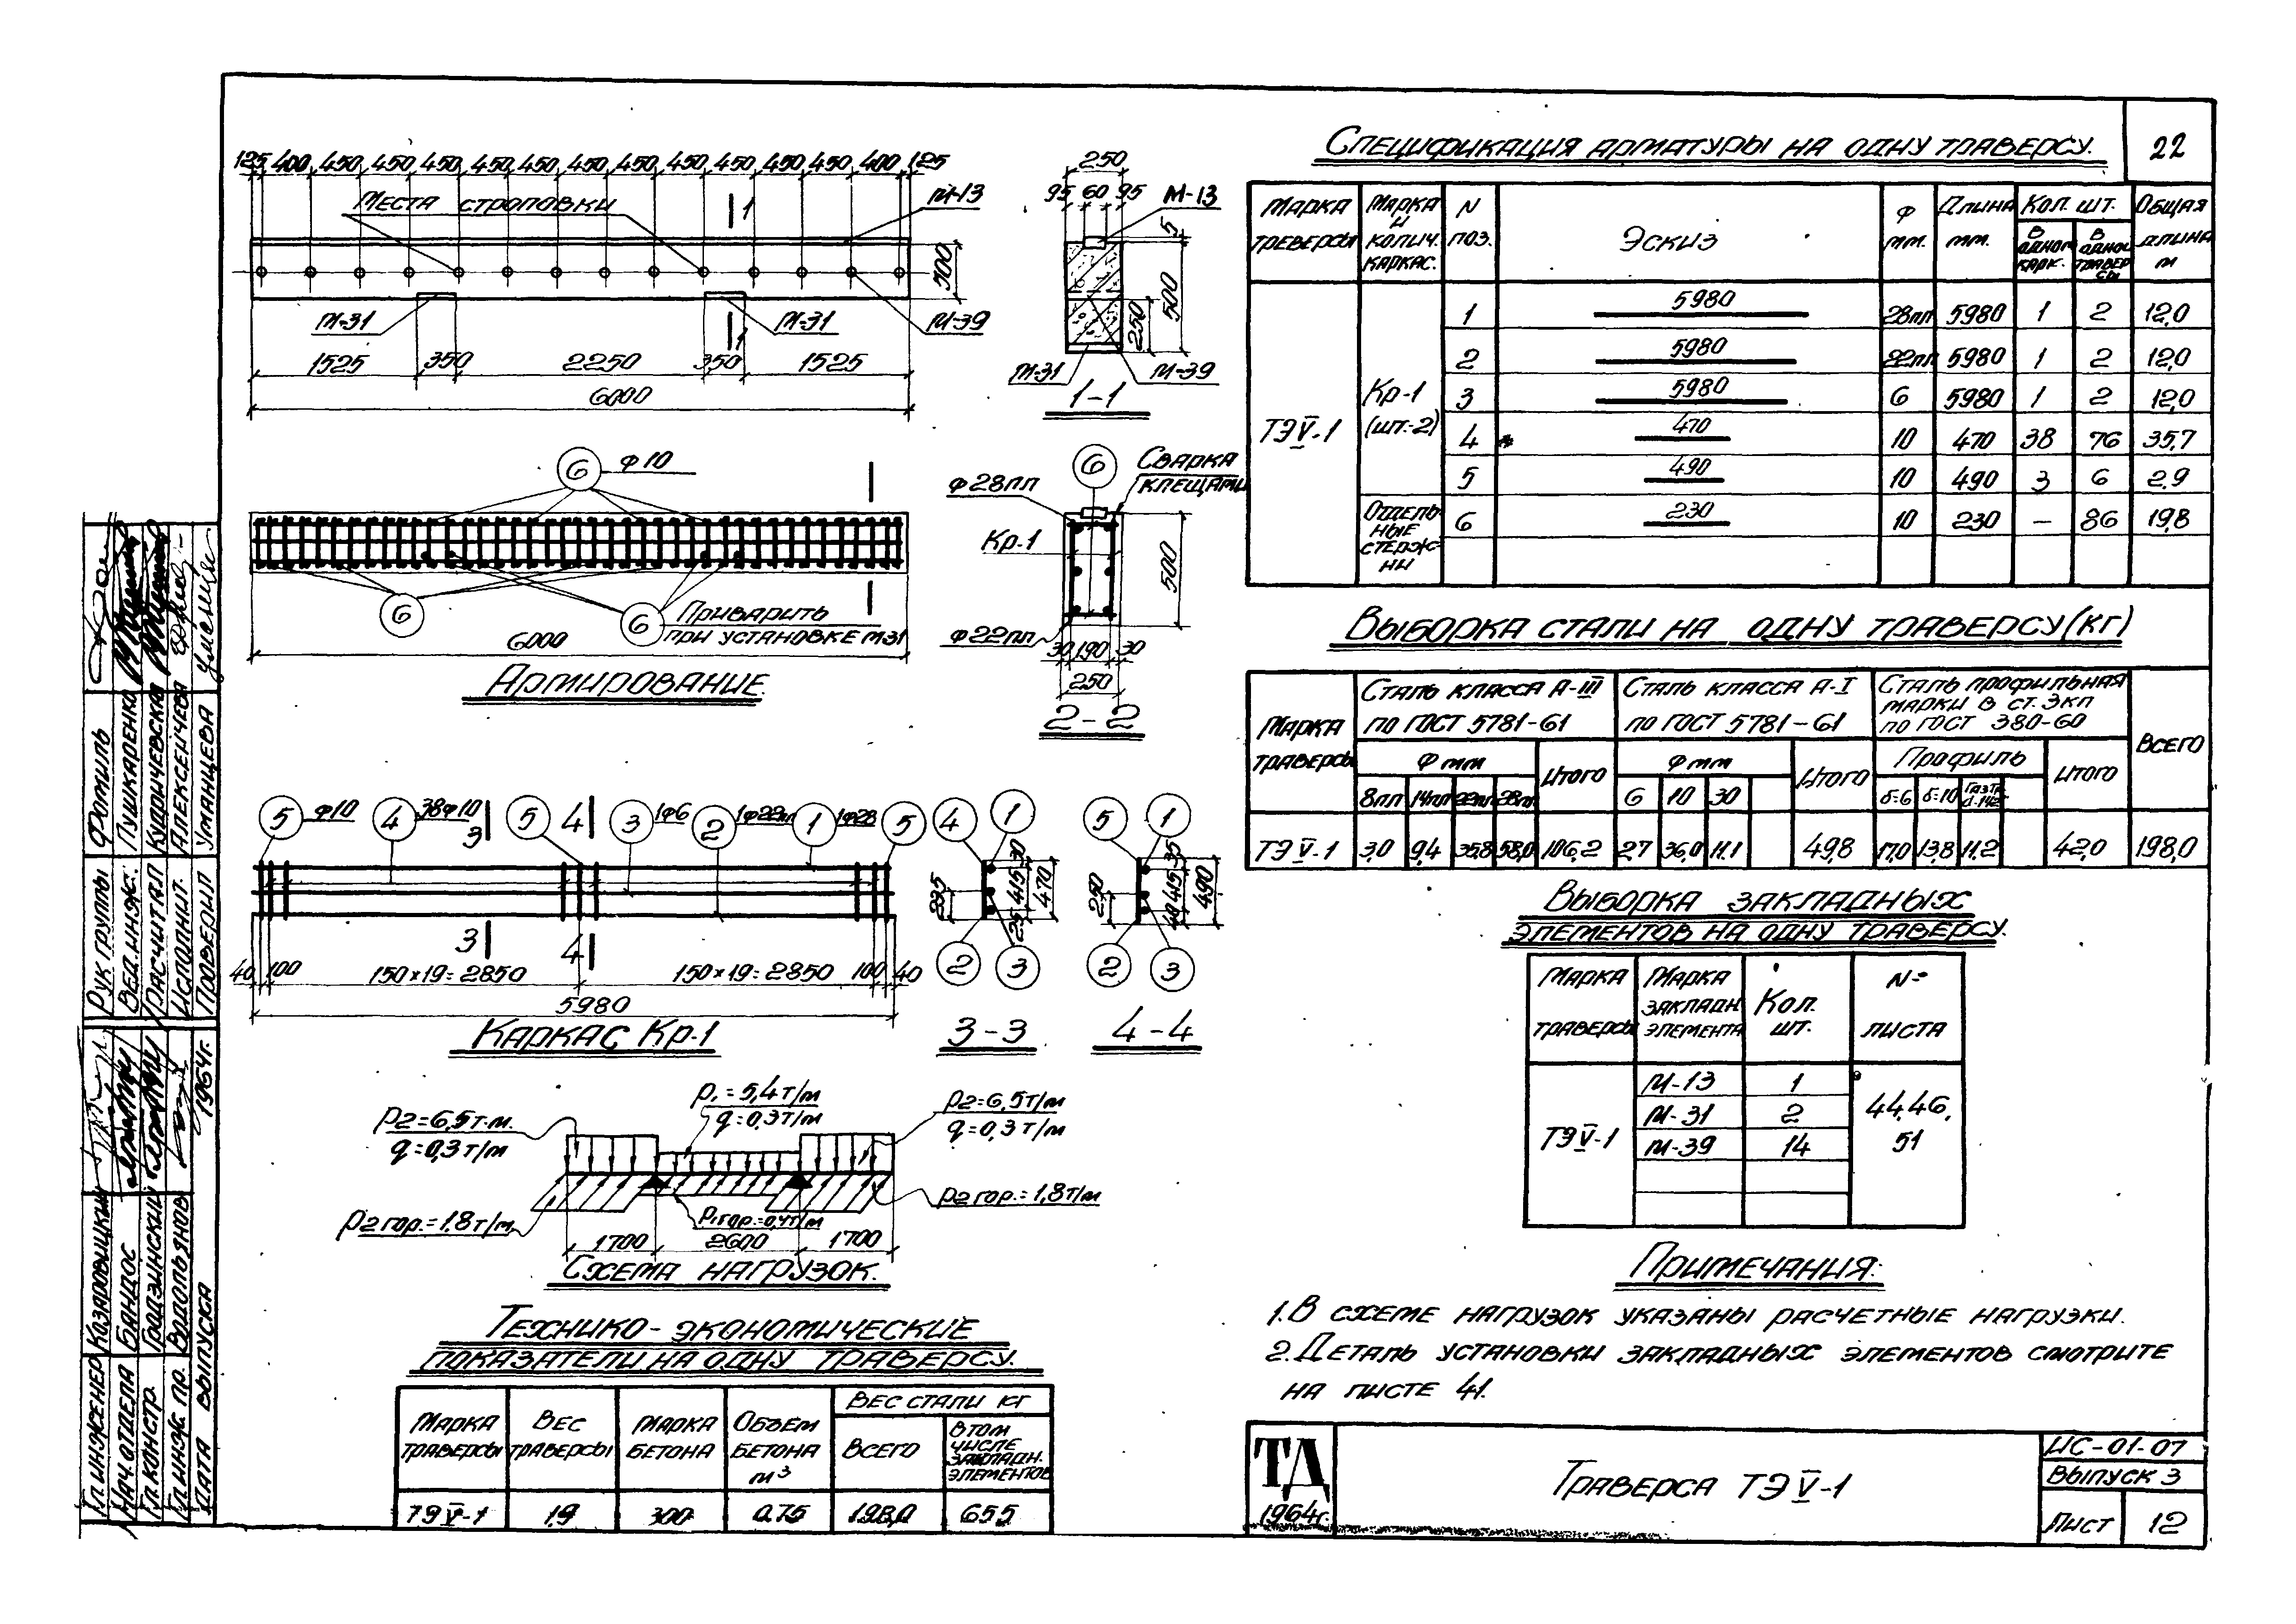 22
125 400 450 450 450 450 450 450 450 450 450 450 450 400 125
Места строповки
1
М-13
500
М-31
М-31
М-39
1
1525 350 2250 350 1525
6000
250
95 60 95
М-13
5
500
250
М-31
М-39
1-1
6 Ф10
6
6 Приварить
при установке М31
6000
Армирование.
6
Сварка
клещами
Ф28пл
Кр-1
500
Ф22пл
30 190 30
250
2-2
5 Ф10
4 38Ф10
3
5
4
3 1Ф6
2 1Ф22пл
1 1Ф28
5
3
4
40 100 150×19=2850 150×19=2850 100 40
5980
Каркас Кр-1
4 1
235
30
415
25
470
2 3
3-3
5 1
250
35
415
40
490
2 3
4-4
P₁=5,4т/м
q=0,3т/м
P2=6,5т.м.
q=0,3т/м
P2=6,5т/м
q=0,3т/м
P2гор.=1,8т/м
P2гор.=1,8т/м
P₁гор.=0,4т/м
1700 2600 1700
Схема нагрузок.
Технико-экономические
показатели на одну траверсу.
Марка траверсы
Вес траверсы
Марка бетона
Объем бетона м³
Вес стали кг
Всего
В том числе закладн. элементов
ТЭV-1 1,9 300 0.75 198,0 65.5
Спецификация арматуры на одну траверсу.
Марка треверсы
Марка и колич. каркас.
N поз.
Эскиз
Ф мм.
Длина мм.
Кол. шт.
В одном карк.
В одной траверсы
Общая длина м
ТЭV-1
Кр-1
(шт.-2)
1 5980 28пл 5980 1 2 12,0
2 5980 22пл 5980 1 2 12,0
3 5980 6 5980 1 2 12,0
4 470 10 470 38 76 35,7
5 490 10 490 3 6 2.9
Отдельные стержни
6 230 10 230 — 86 19,8
Выборка стали на одну траверсу (кг)
Марка траверсы
Сталь класса А-III
по ГОСТ 5781-61
Сталь класса А-I
по ГОСТ 5781-61
Сталь профильная
марки В ст. 3кп
по ГОСТ 380-60
Всего
Ф мм
Итого
Ф мм
Итого
Профиль
Итого
8пл 14пл 22пл 28пл
6 10 30
δ=6 δ=10
ТЭV-1 3,0 9,4 35,8 58,0 106,2 2,7 36,0 11.1 49,8 17,0 13,8 11,2 42,0 198,0
Выборка закладных
элементов на одну траверсу.
Марка траверсы
Марка закладн. элемента
Кол. шт.
N= листа
ТЭV-1
М-13 1
М-31 2
М-39 14
44,46,
51
Примечания:
1. В схеме нагрузок указаны расчетные нагрузки.
2. Деталь установки закладных элементов смотрите
на листе 41.
ТД
1964г.
Траверса ТЭV-1
ИС-01-07
Выпуск 3
Лист 12
Рук группы Фомиль
Вед. инж. Пушкаренко
Расчитал Кудричевская
Исполнит. Алексеичева
Проверил Уманцева
Гл. инженер Козаровицкий
Нач. отдела Бандос
Гл. констр. Гродзинский
Гл. инж. пр. Водольянов
Дата выпуска 1964г.